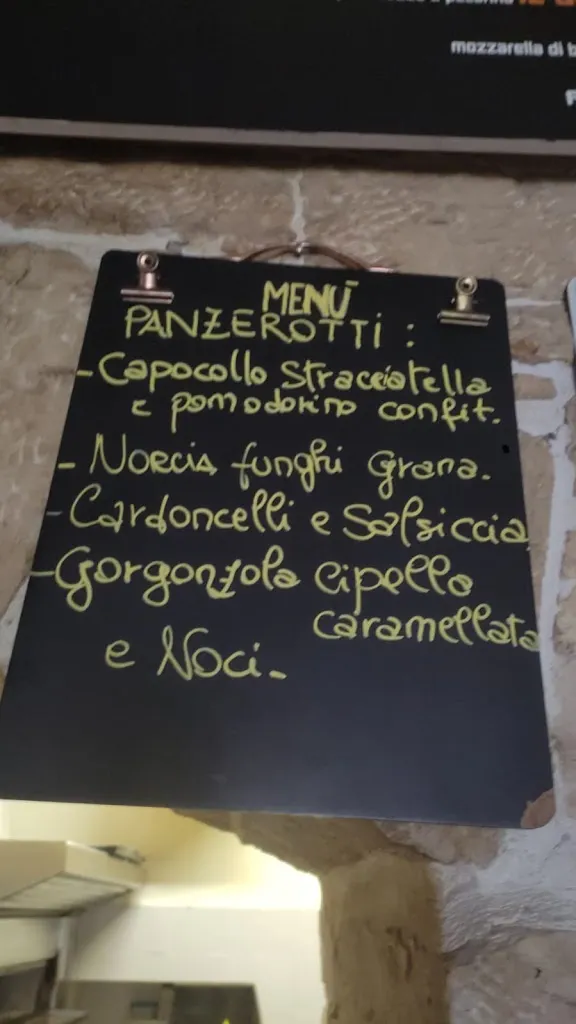 mozzarella di b
MENÙ
PANZEROTTI :
- Capocollo Stracciatella
e pomodorino confit.
- NORCIA funghi Grana.
- Cardoncelli e Salsiccia
- Gorgonzola cipolla
caramellata
e Noci -